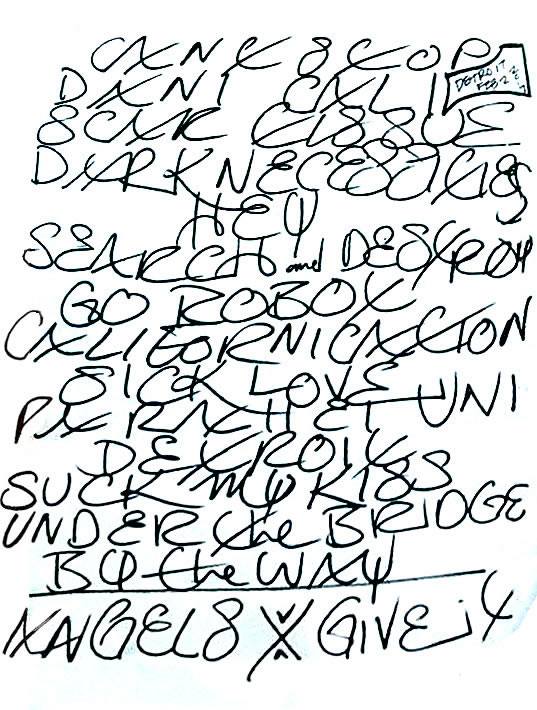 CANT STOP
DANI CALI
DETROIT
FEB-2
SCAR TISSUE
DARK NECESSITIES
HEY
SEARCH and DESTROY
GO ROBOT
CALIFORNICATION
SICK LOVE
UNI
DETROIT
SUCK MY KISS
UNDER the BRIDGE
BY the WAY
ANGELS X GIVE it